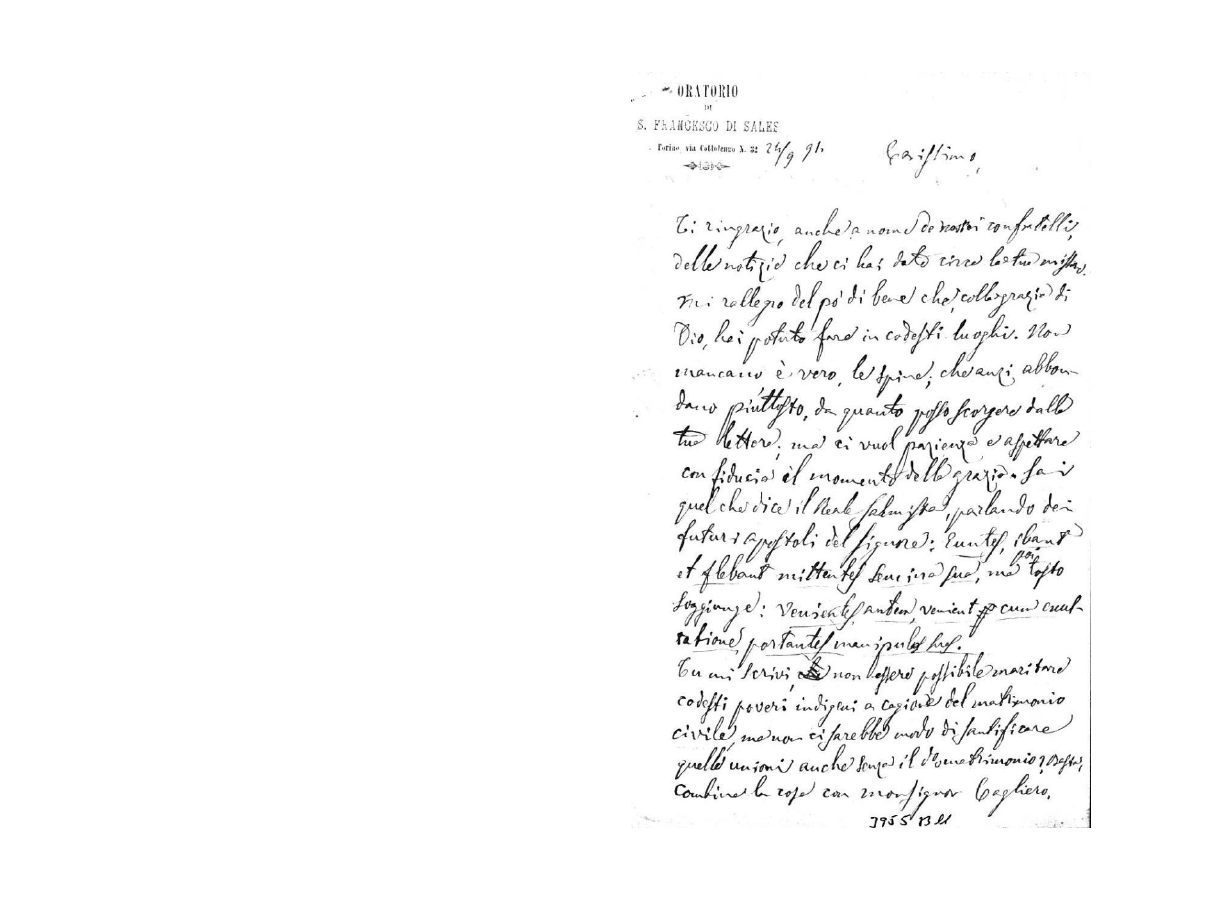 ORATORIO
DI
S. FRANCESCO DI SALES
Torino, via Cottolengo N. 32 24/9 91.
Carissimo,
Ti ringrazio, anche a nome de' nostri confratelli,
delle notizie che ci hai dato circa la tua miss.
Mi rallegro del pò di bene che, colla grazia di
Dio, hai potuto fare in codesti luoghi. Non
mancano è vero, le spine; che anzi abbon-
dano piuttosto, da quanto posso scorgere dalla
tua lettera; ma ci vuol pazienza e aspettare
con fiducia il momento della grazia. Sai
quel che dice il Reale Salmista, parlando dei
futuri apostoli del Signore: Euntes, ibant
et flebant mittentes semina sua, ma poi tosto
soggiunge: Venientes autem, venient cum exul-
tatione, portantes manipulos suos.
Tu mi scrivi, non essere possibile maritare
codesti poveri indigeni a cagione del matrimonio
civile, ma non ci sarebbe modo di santificare
quelle unioni anche senza il do matrimonio? Basta,
combina la cosa con monsignor Cagliero.
3955 B11